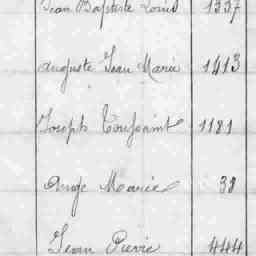 Jean Baptiste Louis 1337
Auguste Jean Marie 1413
Joseph Toussaint 1181
Ange Marie 38
Jean Pierre 444